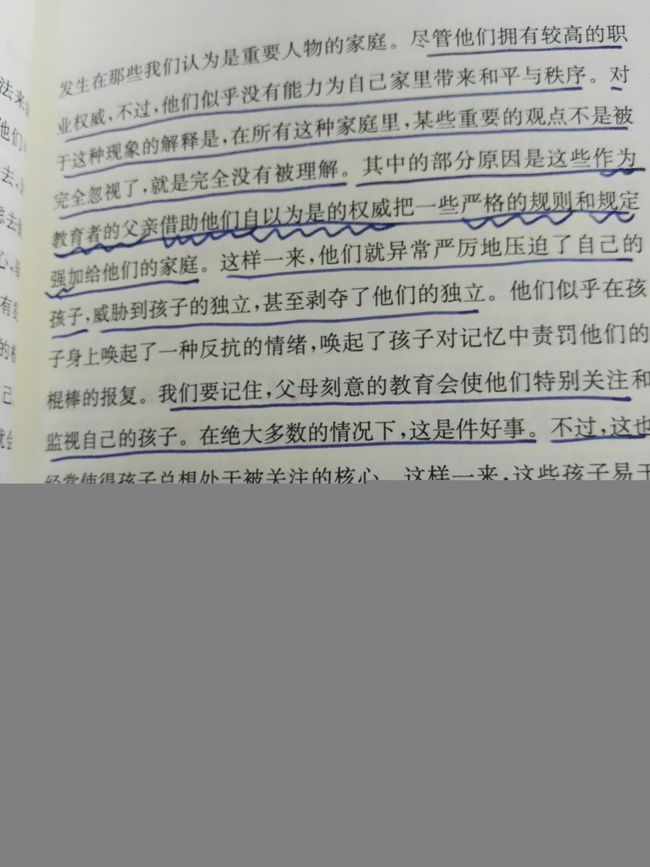 发生在那些我们认为是重要人物的家庭。尽管他们拥有较高的职
业权威，不过，他们似乎没有能力为自己家里带来和平与秩序。对
于这种现象的解释是，在所有这种家庭里，某些重要的观点不是被
完全忽视了，就是完全没有被理解。其中的部分原因是这些作为
教育者的父亲借助他们自以为是的权威把一些严格的规则和规定
强加给他们的家庭。这样一来，他们就异常严厉地压迫了自己的
孩子，威胁到孩子的独立，甚至剥夺了他们的独立。他们似乎在孩
子身上唤起了一种反抗的情绪，唤起了孩子对记忆中责罚他们的
棍棒的报复。我们要记住，父母刻意的教育会使他们特别关注和
监视自己的孩子。在绝大多数的情况下，这是件好事。不过，这也
经常使得孩子总想处于被关注的核心。这样一来，这些孩子易于
法来
他们
去，
去
心，
有
的
己
就会